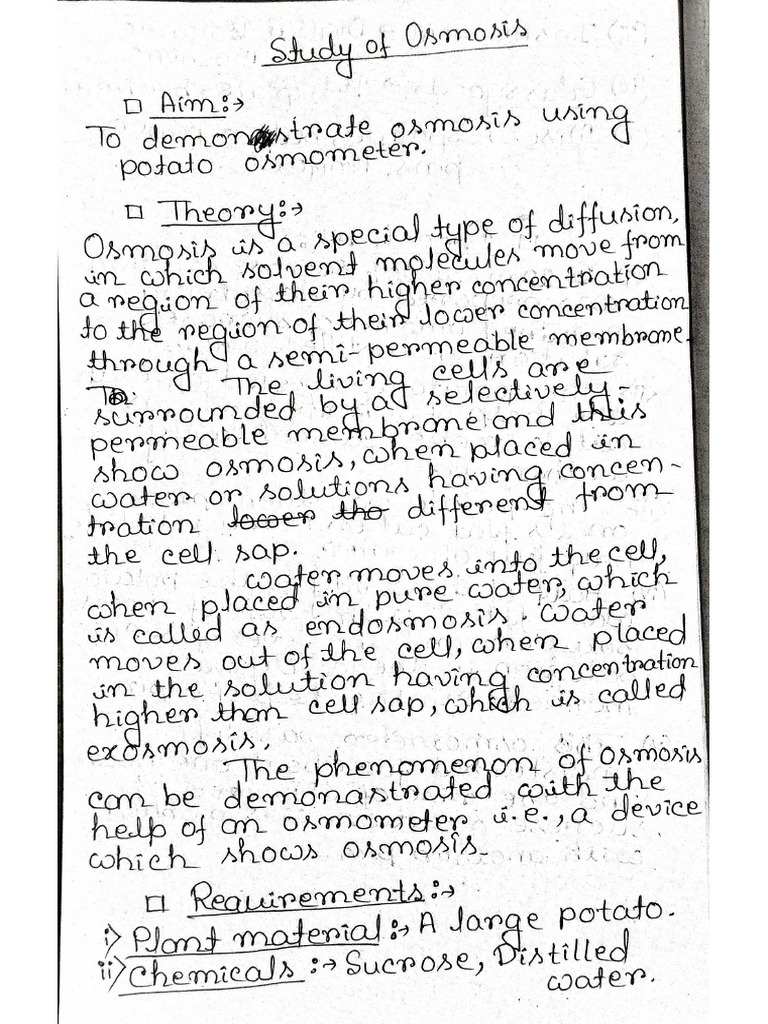 Study of Osmosis
□ Aim:→
To demonstrate osmosis using
potato osmometer.
□ Theory:→
Osmosis is a special type of diffusion,
in which solvent molecules move from
a region of their higher concentration
to the region of their lower concentration
through a semi-permeable membrane.
The living cells are
surrounded by a selectively-
permeable membrane and this
show osmosis, when placed in
water or solutions having concen-
tration lower tho different from
the cell sap.
water moves into the cell,
when placed in pure water, which
is called as endosmosis. Water
moves out of the cell, when placed
in the solution having concentration
higher than cell sap, which is called
exosmosis.
The phenomenon of osmosis
can be demonastrated with the
help of an osmometer i.e., a device
which shows osmosis.
□ Requirements:→
i> Plant material:→ A large potato.
ii> Chemicals:→ Sucrose, Distilled
water.